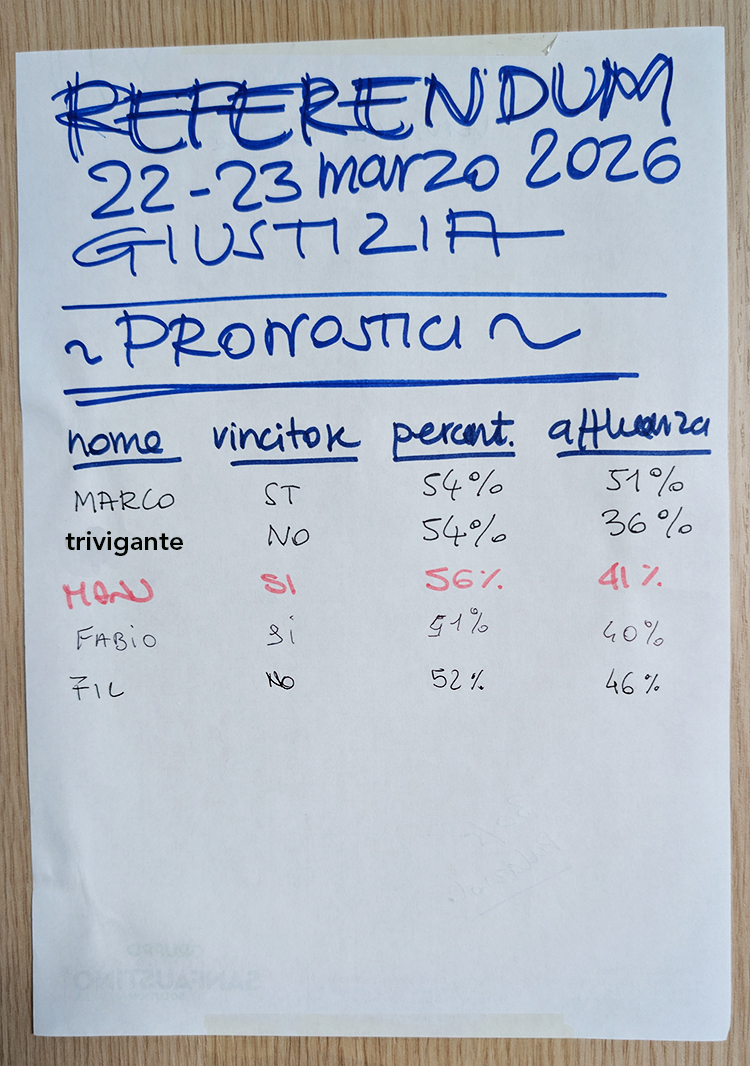 REFERENDUM
22-23 marzo 2026
GIUSTIZIA
~ PRONOSTICI ~
nome vincitore percent. affluenza
MARCO SI 54% 51%
trivigante NO 54% 36%
MANU SI 56% 41%
FABIO Si 51% 40%
FIL NO 52% 46%
SANFAUSTINO